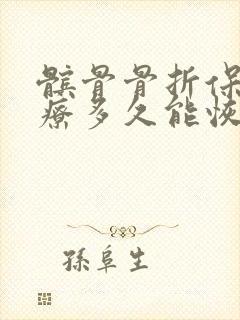 髌骨骨折保
療多久能恢
孫阜生